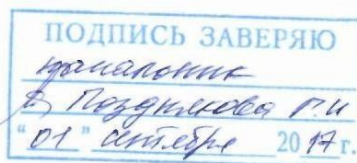 ПОДПИСЬ ЗАВЕРЯЮ
начальник
Позднякова Г.И
"01" сентября 2017 г.